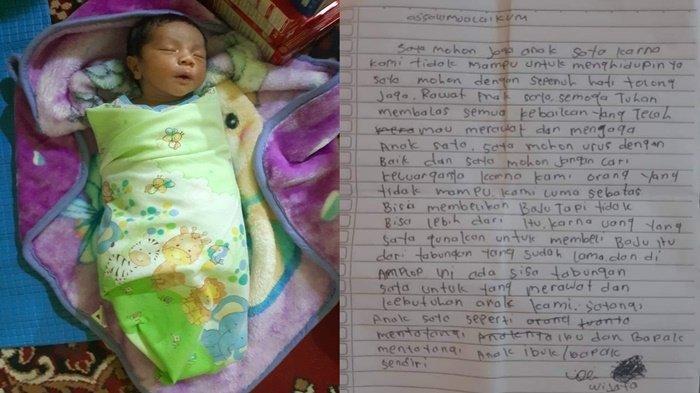 assalamualaikum
Saya mohon jaga anak saya karna
kami tidak mampu untuk menghidupinya
saya mohon dengan sepenuh hati tolong
Jaga, Rawat Anak saya, semoga Tuhan
membalas semua kebaikan yang Telah
mau merawat dan menjaga
Anak saya, saya mohon urus dengan
Baik dan saya mohon jangan cari
keluarganya karna kami orang yang
tidak mampu, kami cuma sebatas
Bisa membelikan Baju Tapi tidak
Bisa lebih dari Itu, karna uang yang
saya gunakan untuk membeli Baju itu
dari tabungan yang sudah lama, dan di
AMPLOP ini ada sisa tabungan
saya untuk yang merawat dan
kebutuhan anak kami. sayangi
Anak saya seperti
menyayangi ibu dan Bapak
menyayangi Anak ibuk/bapak
sendiri
wijaya